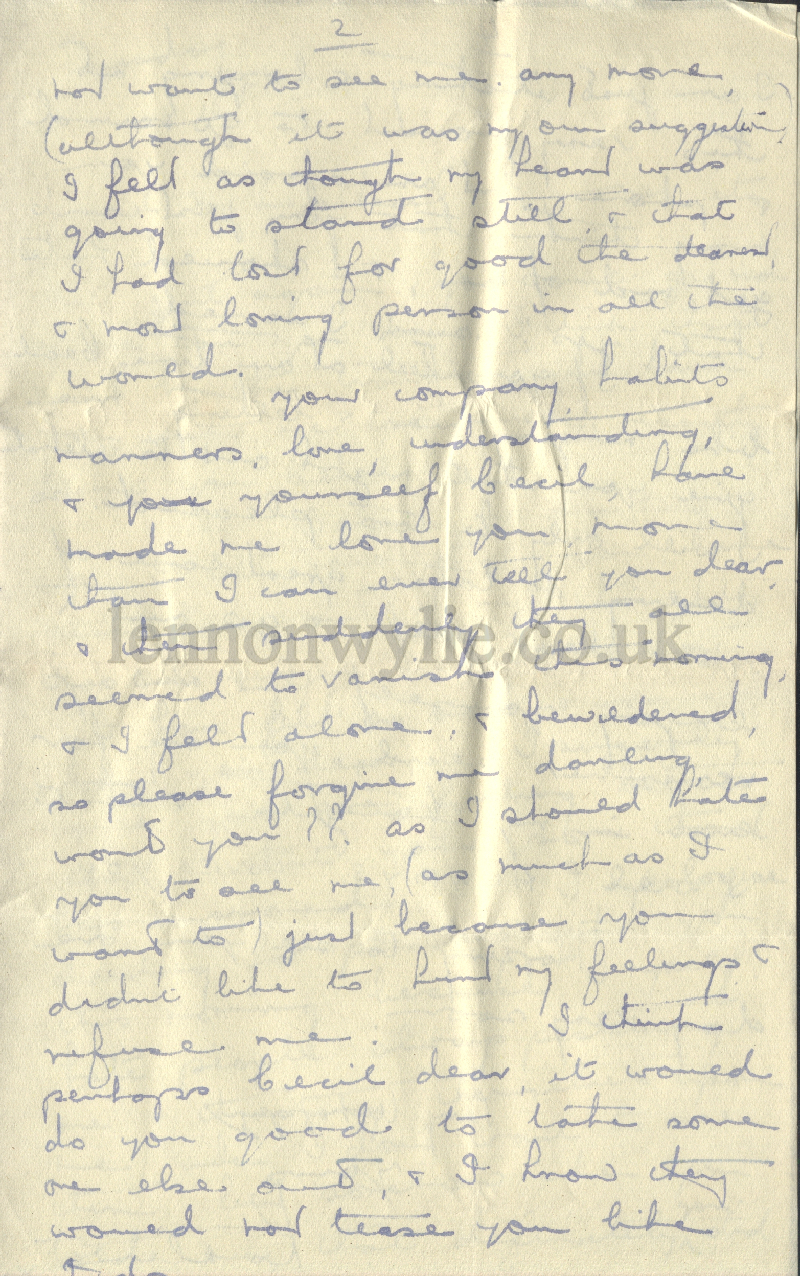 2
not want to see me any more,
(although it was my own suggestion,)
I felt as though my heart was
going to stand still, & that
I had lost for good the dearest,
& most loving person in all the
world.
your company, habits
manners, love, understanding,
& you yourself Cecil, have
made me love you more
than I can ever tell you dear,
& then suddenly they all
lennonwylie.co.uk
seemed to vanish this morning,
& I felt alone, & bewildered,
so please forgive me darling,
wont you??. as I should hate
you to see me, (as much as I
want to) just because you
didn't like to hurt my feelings &
refuse me. I think
perhaps Cecil dear, it would
do you good to take some
one else out, & I know they
would not tease you like
I do